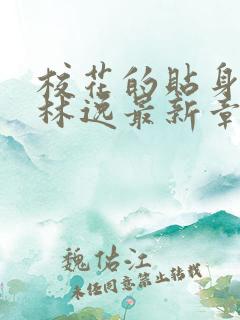 校花的貼身
林逸最新章
魏佑江
未经同意禁止转载